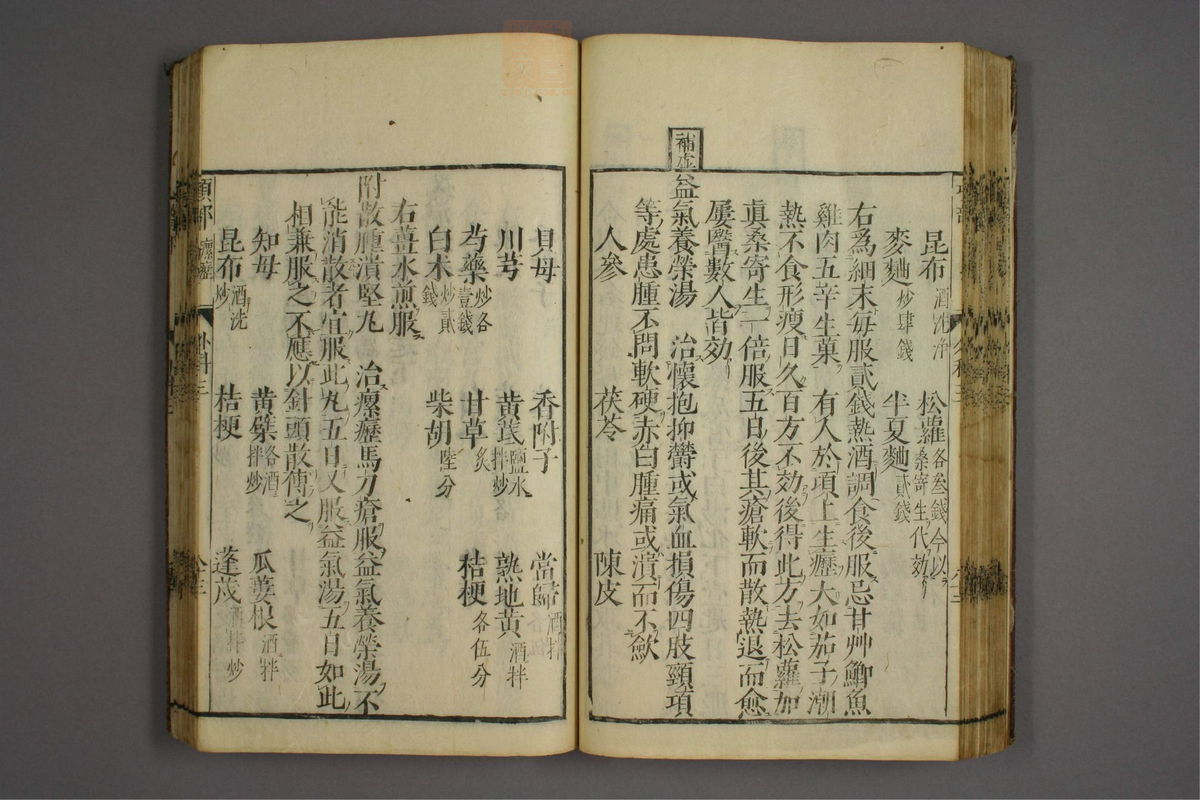 昆布酒洗浄 松蘿各叁錢今以桑寄生代効
麥麯炒肆錢 半夏麯貳錢
右爲細末每服貳錢熱酒調食後服忌甘艸鯽魚
雞肉五辛生菓 有人於項上生癧大如茄子潮
熱不食形瘦日久百方不効後得此方去松蘿加
眞桑寄生一倍服五日後其瘡軟而散熱退而愈
屢醫數人皆効
補虛
益氣養榮湯 治懷抱抑欝或氣血損傷四肢頸項
等處患腫不問軟硬赤白腫痛或潰而不歛
人參 茯苓 陳皮
貝母 香附子 當歸酒拌
川芎 黃芪鹽水拌炒 熟地黃酒拌
芍藥炒各壹錢 甘草炙 桔梗各伍分
白朮炒貳錢 柴胡陸分
右薑水煎服
附散腫潰堅丸 治瘰癧馬刀瘡服益氣養榮湯不
能消散者宜服此丸五日又服益氣湯五日如此
相兼服之不應以針頭散傅之
知母 黃檗各酒拌炒 瓜蔞根酒拌
昆布酒洗炒 桔梗 蓬茂酒拌炒
項部 瘰癧 外科三